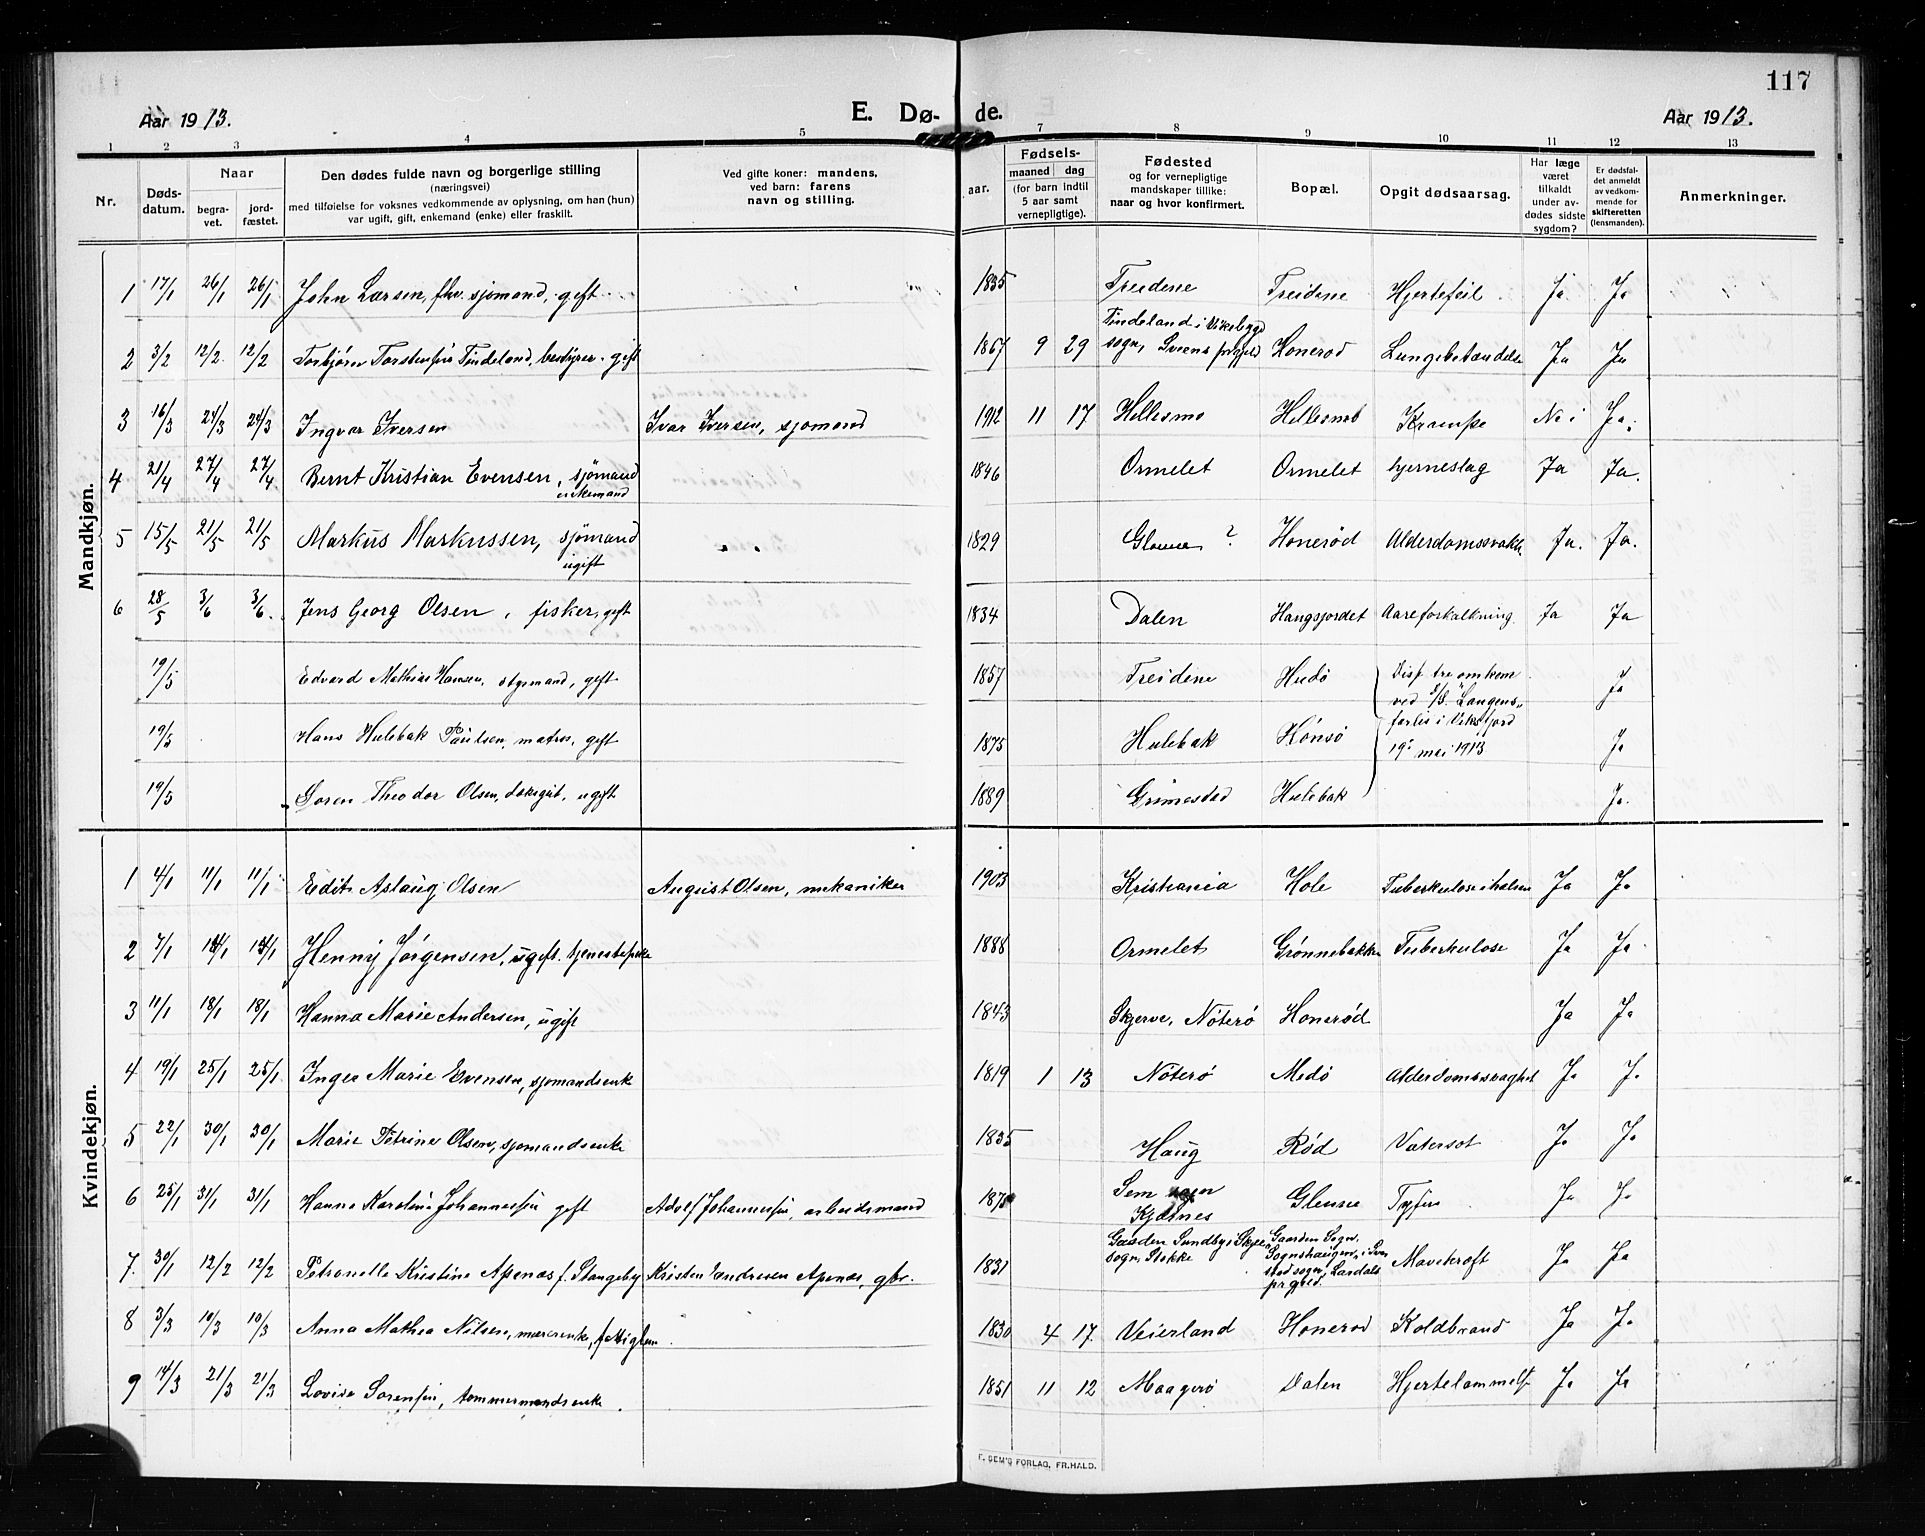 117
Aar 1913. E. Dø- de. Aar 1913.
1 2 3 4 5 7 8 9 10 11 12 13
Nr. Døds-datum. Naar begra-vet. jord-fæstet. Den dødes fulde navn og borgerlige stilling (næringsvei) med tilføielse for voksnes vedkommende av oplysning, om han (hun) var ugift, gift, enkemand (enke) eller fraskilt. Ved gifte koner: mandens, ved barn: farens navn og stilling. Fødsels- aar. maaned dag (for barn indtil 5 aar samt vernepligtige). Fødested og for vernepligtige mandskaper tillike: naar og hvor konfirmert. Bopæl. Opgit dødsaarsag. Har læge været tilkaldt under av-dødes sidste sygdom? Er dødsfal-det anmeldt av vedkom-mende for skifteretten (lensmanden). Anmerkninger.
Mandkjøn.
1 17/1 26/1 26/1 John Larsen, fhv. sjømand, gift 1835 Treidene Treidene Hjertefeil. Ja Ja
2 3/2 12/2 12/2 Torbjørn Torstensen Tindeland, bestyrer, gift 1867 9 29 Tindeland i Vikebygd sogn, Sveens prgjeld Honerød Lungebetændelse Ja Ja
3 16/3 24/3 24/3 Ingvar Iversen Ivar Iversen, sjømand 1912 11 17 Hellesmo Hellesmo Krampe Nei Ja.
4 21/4 27/4 27/4 Bernt Kristian Evensen, sjömand enkemand 1846 Ormelet Ormelet hjerneslag Ja Ja.
5 15/5 21/5 21/5 Markus Markussen, sjömand ugift 1829 Glomne ? Honerød Alderdomssvakh. Ja. Ja.
6 28/5 3/6 3/6. Jens Georg Olsen, fisker, gift 1834 Dalen Haugsjordet Aareforkalkning. Ja Ja
19/5 Edvard Mathias Hansen, styrmand, gift 1857 Treidene Hudø Disse tre omkom ved S/S. "Langens" Ja
19/5 Hans Hulebak Paulsen, matros, gift 1875 Hulebak Hønsø forlis i Viksfjord 19de mai 1913 Ja
19/5 Søren Theodor Olsen, dæksgut, ugift 1889 Grimestad Hulebak Ja.
Kvindekjøn.
1 4/1 11/1 11/1 Edit Aslaug Olsen August Olsen, mekaniker 1903 Kristiania Hole Tuberkulose i halsen Ja Ja
2 7/1 14/1 14/1 Henny Jörgensen, ugift. tjenestepike 1888 Ormelet Grønnebakken Tuberkulose Ja Ja
3 11/1 18/1 18/1 Hanna Marie Andersen, ugift 1843 Skjerve, Nøterø Honerød Ja Ja
4 19/1 25/1 25/1 Inger Marie Evensen, sjømandsenk 1819 1 13 Nøterø Medø Alderdomssvaghet Ja Ja
5 22/1 30/1 30/1 Marie Petrine Olsen, sjømandsenke 1835 Haug Rød Vatersot Ja Ja
6 25/1 31/1 31/1 Hanna Karoline Johannessen gift Adolf Johannessen, arbeidsmand 1870 Sem sogn Kjærnes Glemne Tyfus Ja Ja
7. 30/1 12/2 12/2 Petronelle Kristine Apenæs f. Stangeby Kristen Endresen Apenæs, gbr. 1831 Gaarden Sundby i Skjee sogn, Stokke Gaarden Sogn, Sognshaugen, i Svarstad sogn, Lardals prgjeld. Mavekræft Ja Ja
8 3/3 10/3 10/3 Anna Mathea Nilsen, murerenke, fattiglem. 1830 4 17 Veierland Honerød Koldbrand Ja Ja
9 14/3 21/3 21/3 Lovise Sørensen, tømmermandsenke. 1851 11 12 Maagerø Dalen Hjertelammelse Ja Ja
F. SEM'S FORLAG, FR.HALD.